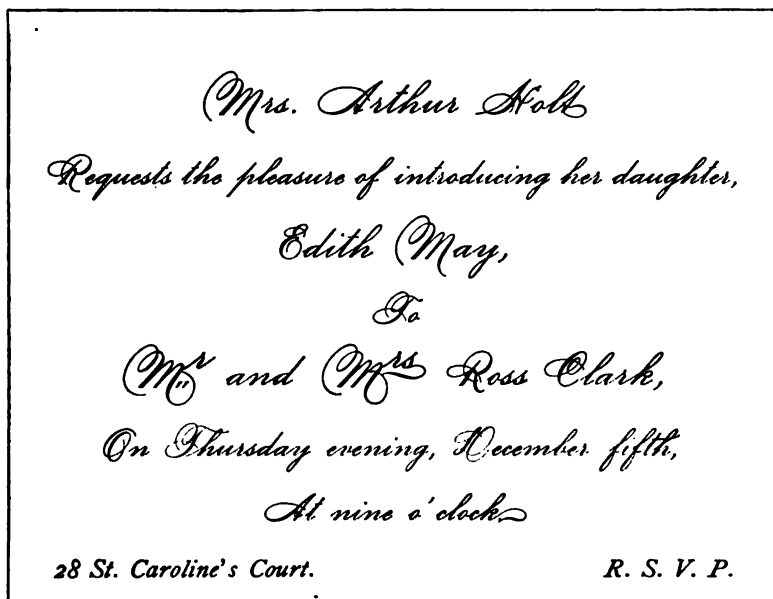 Mrs. Arthur Holt
Requests the pleasure of introducing her daughter,
Edith May,
To
Mr and Mrs Ross Clark,
On Thursday evening, December fifth,
At nine o'clock
28 St. Caroline's Court. R. S. V. P.